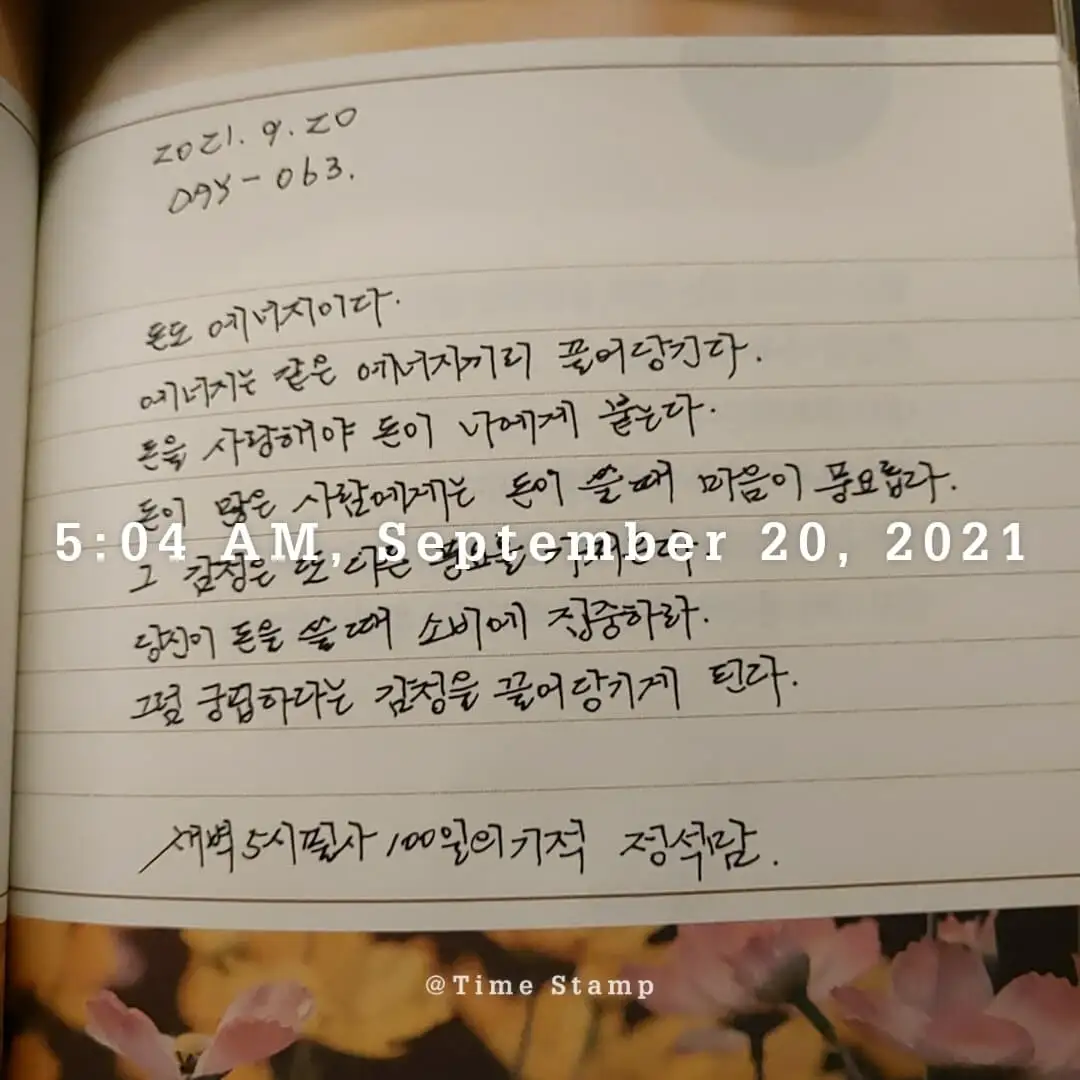 2021.9.20
DAY-063.
돈도 에너지이다.
에너지는 같은 에너지끼리 끌어당긴다.
돈을 사랑해야 돈이 나에게 붙는다.
돈이 많은 사람에게는 돈이 쓸때 마음이 풍요롭다.
5:04 AM, September 20, 2021
그 감정은 또 다른 풍요를
당신이 돈을 쓸때 소비에 집중하라.
그럼 궁핍하다는 감정을 끌어당기게 된다.
새벽5시필사 100일의기적 정석맘.
@Time Stamp